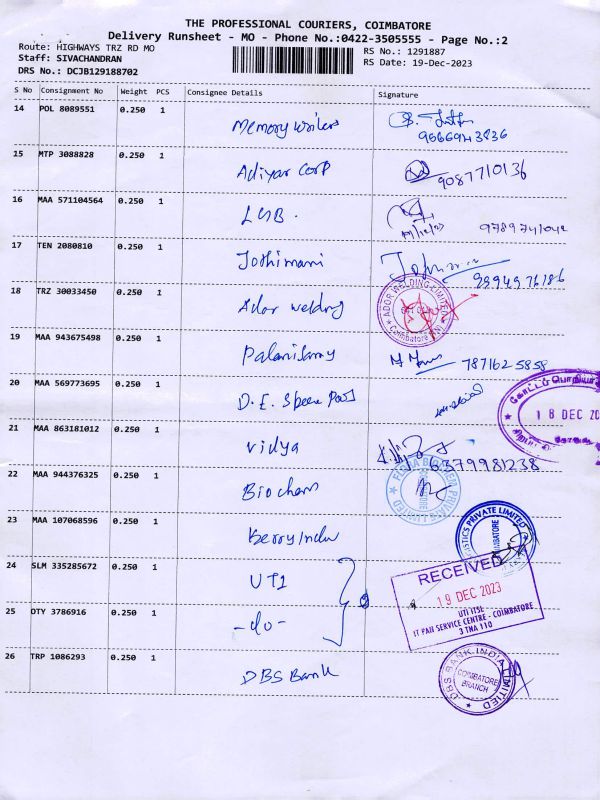 THE PROFESSIONAL COURIERS, COIMBATORE
Delivery Runsheet - MO - Phone No.:0422-3505555 - Page No.:2
Route: HIGHWAYS TRZ RD MO
RS No.: 1291887
Staff: SIVACHANDRAN
RS Date: 19-Dec-2023
DRS No.: DCJB129188702
S No Consignment No Weight PCS Consignee Details Signature
14 POL 8089551 0.250 1 Memory writers
9566943836
15 MTP 3088828 0.250 1 Adiyar Corp 9087710136
16 MAA 571104564 0.250 1 LGB.
17 TEN 2080810 0.250 1 Jothimani
9894976186
18 TRZ 30033450 0.250 1 Ador welding
ADOR WELDING LIMITED
Coimbatore
19 MAA 943675498 0.250 1 Palanisamy 787162 5858
20 MAA 569773695 0.250 1 D.E.
18 DEC
21 MAA 863181012 0.250 1 Vidya 6379981238
22 MAA 944376325 0.250 1 Biochem
PRIVATE LIMITED
23 MAA 107068596 0.250 1
PRIVATE LIMITED
24 SLM 335285672 0.250 1 UTI
RECEIVED
19 DEC 2023
UTI ITSL
IT PAN SERVICE CENTRE - COIMBATORE
3 THA 110
25 OTY 3786916 0.250 1 -do-
26 TRP 1086293 0.250 1 DBS Bank
DBS BANK INDIA LIMITED
COIMBATORE
BRANCH